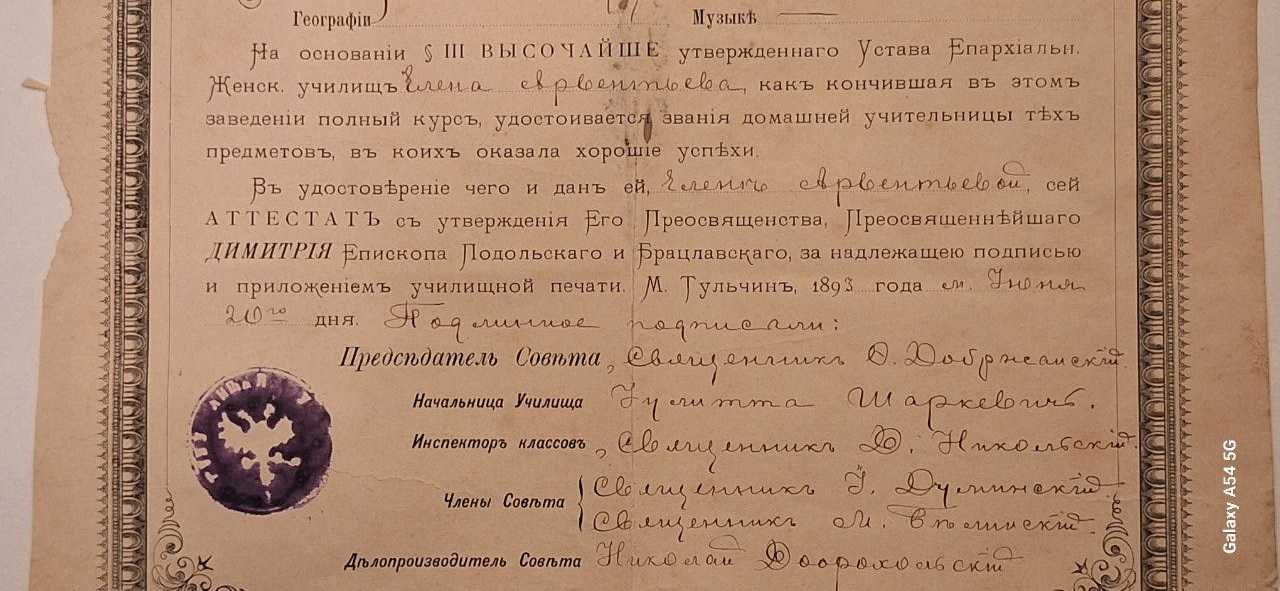 Географіи Музыкѣ
На основаніи § III ВЫСОЧАЙШЕ утвержденнаго Устава Епархіальн.
Женск. училищъ Елена Арвентьева, какъ кончившая въ этомъ
заведеніи полный курсъ, удостоивается званія домашней учительницы тѣхъ
предметовъ, въ коихъ оказала хорошіе успѣхи.
Въ удостовѣреніе чего и данъ ей, Еленѣ Арвентьевой, сей
АТТЕСТАТЪ съ утвержденія Его Преосвященства, Преосвященнѣйшаго
ДИМИТРІЯ Епископа Подольскаго и Брацлавскаго, за надлежащею подписью
и приложеніемъ училищной печати. М. Тульчинъ, 1893 года м. Іюня
20го дня. Подлинное подписали:
Предсѣдатель Совѣта, Священникъ Ѳ. Добржанскій.
Начальница Училища Іулитта Шаркевичъ.
Инспекторъ классовъ, Священникъ Д. Никольскій.
Члены Совѣта Священникъ І. Думинскій
Священникъ М. Бѣлинскій.
Дѣлопроизводитель Совѣта Николай Доброхольскій
Galaxy A54 5G